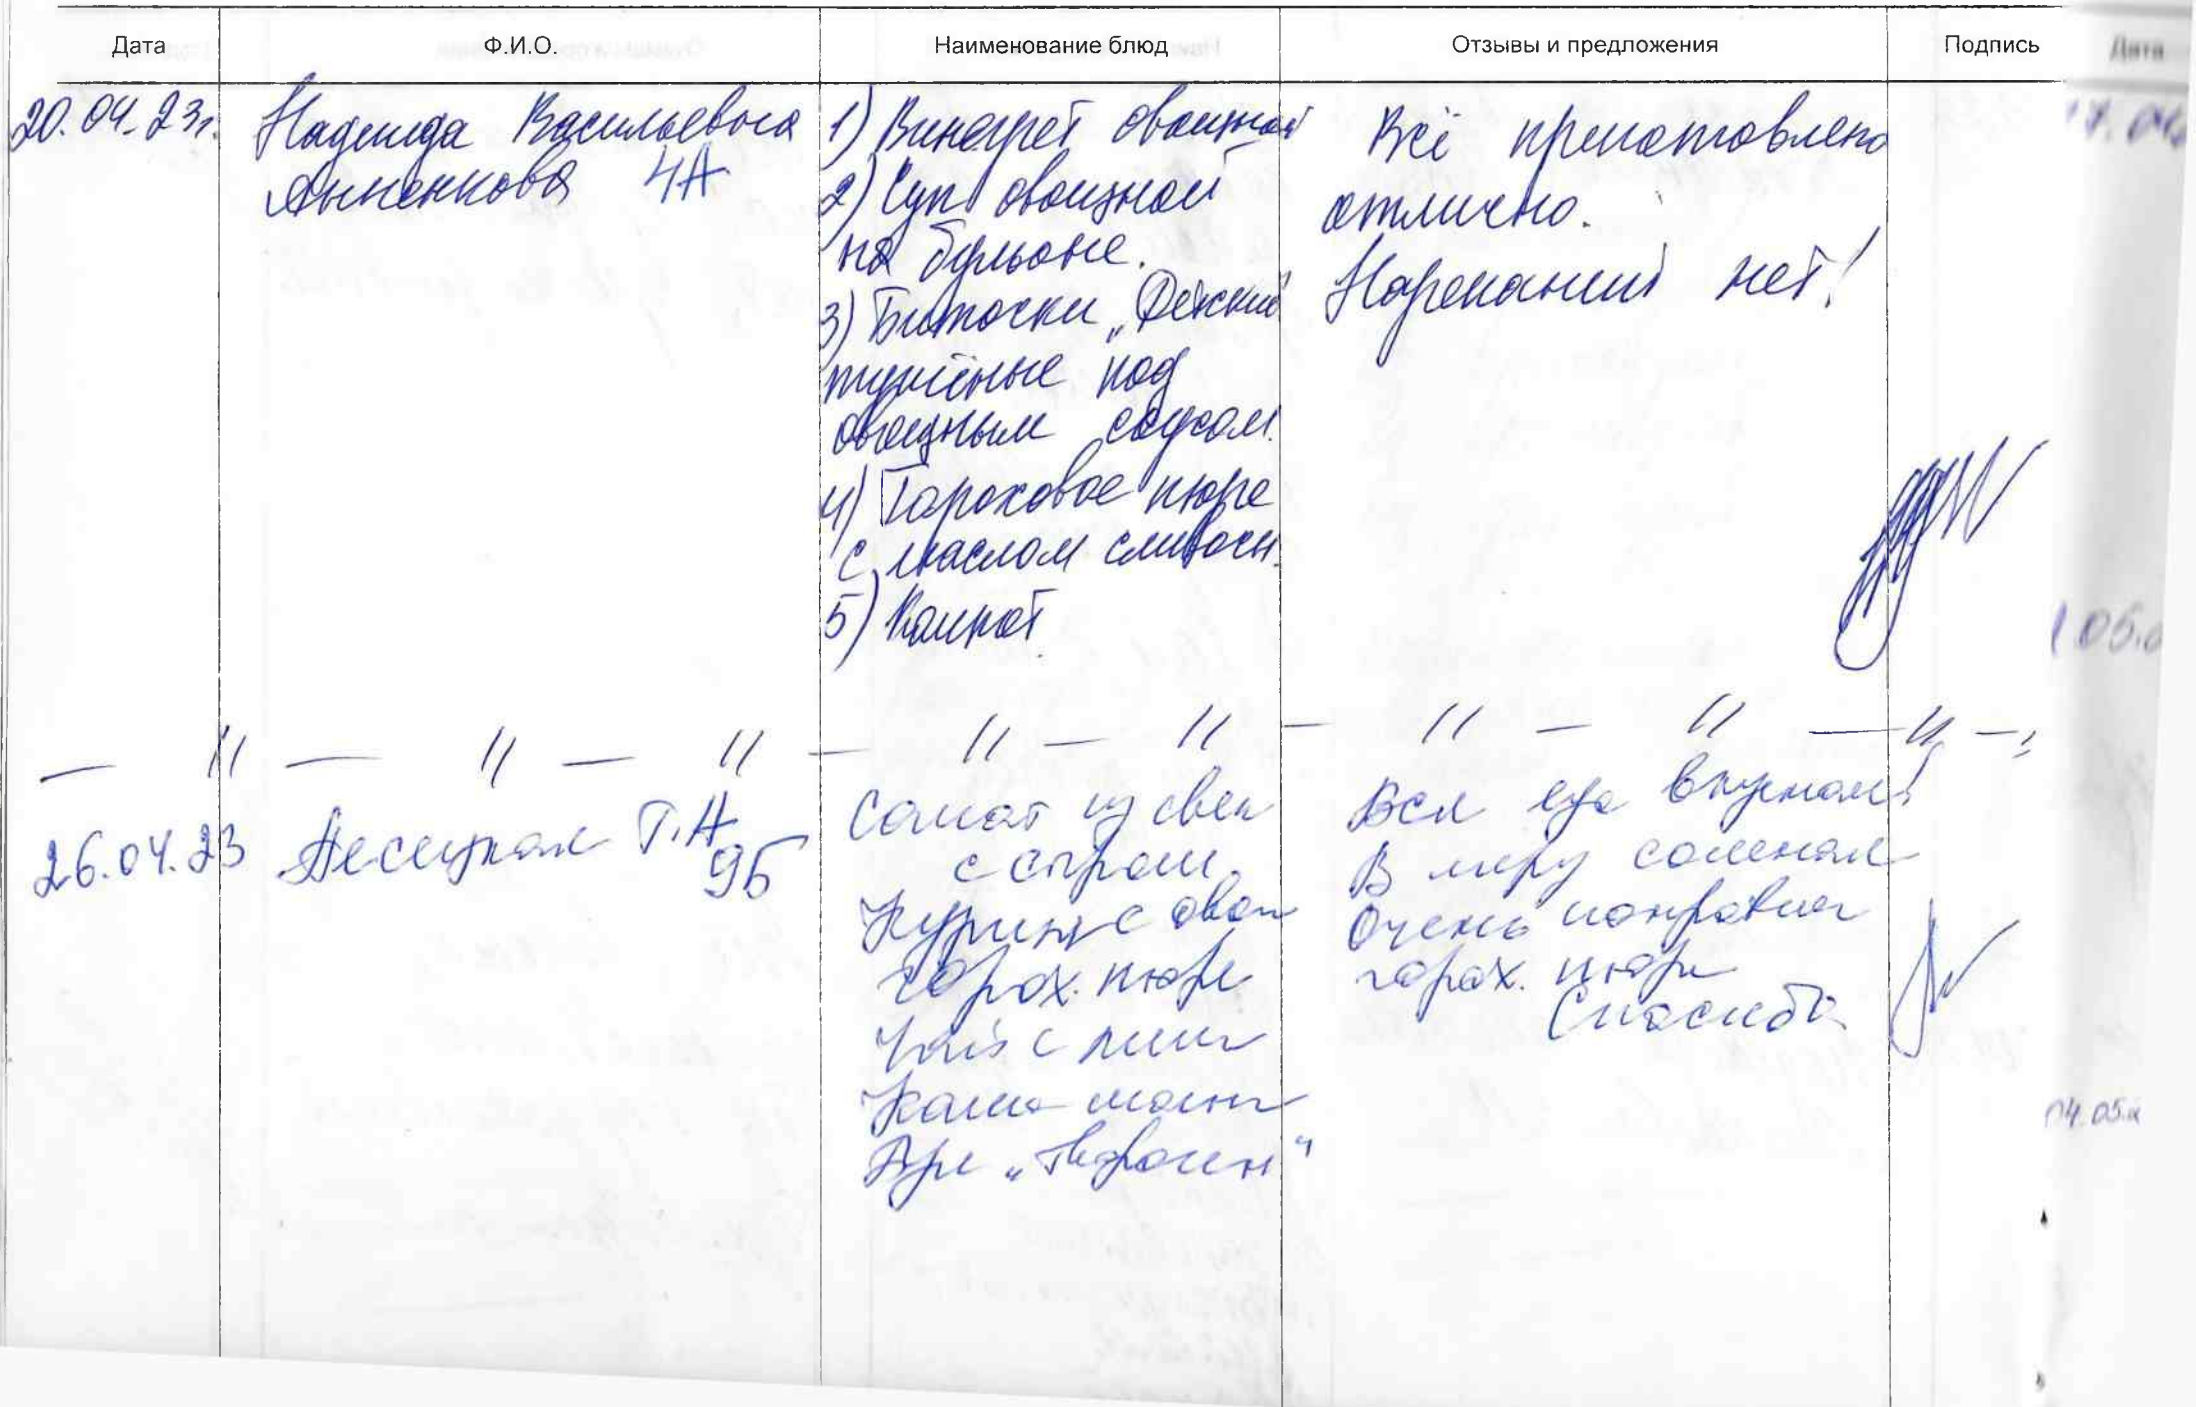 Дата Ф.И.О. Наименование блюд Отзывы и предложения Подпись
20.04.23г.
Надежда Васильевна
Анненкова 4А
1) Винегрет овощной
2) Суп овощной
на бульоне.
3) Биточки „Детский
тушёные под
овощным соусом.
4) Гороховое пюре
с маслом сливочн.
5) Компот
Всё приготовлено
отлично.
Нареканий нет!
— " — " — " — " — " — " — " — " —
26.04.23
Т.А
9Б
Салат из свек
с сыром.
Курица с овощ
горох. пюре
Чай с лим
Каша манн
"
Вся еда вкусная!
В меру соленая
Очень понравил
горох. пюре
Спасибо
04.05.2